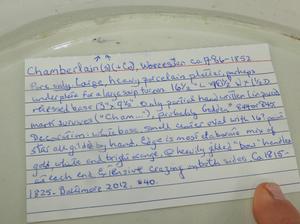 Chamberlain(s)(+Co), Worcester ca 1786-1852
One only Large, heavy porcelain platter, perhaps
underplate for a large soup tureen 16½" L × 10½" W × 1½ D
recessed base (3" × 9½" Only partial hand written (in paint
mark survives ("Cham..."), probably Godden
Decoration: white base, small center oval with 16 point
star all gilded by hand. Edge is most elaborate mix of
gold, white and bright orange. @ heavily gilded "bow" handles
on each end Extensive crazing on both sides. Ca 1815-
1825. Baltimore 2012. $40.